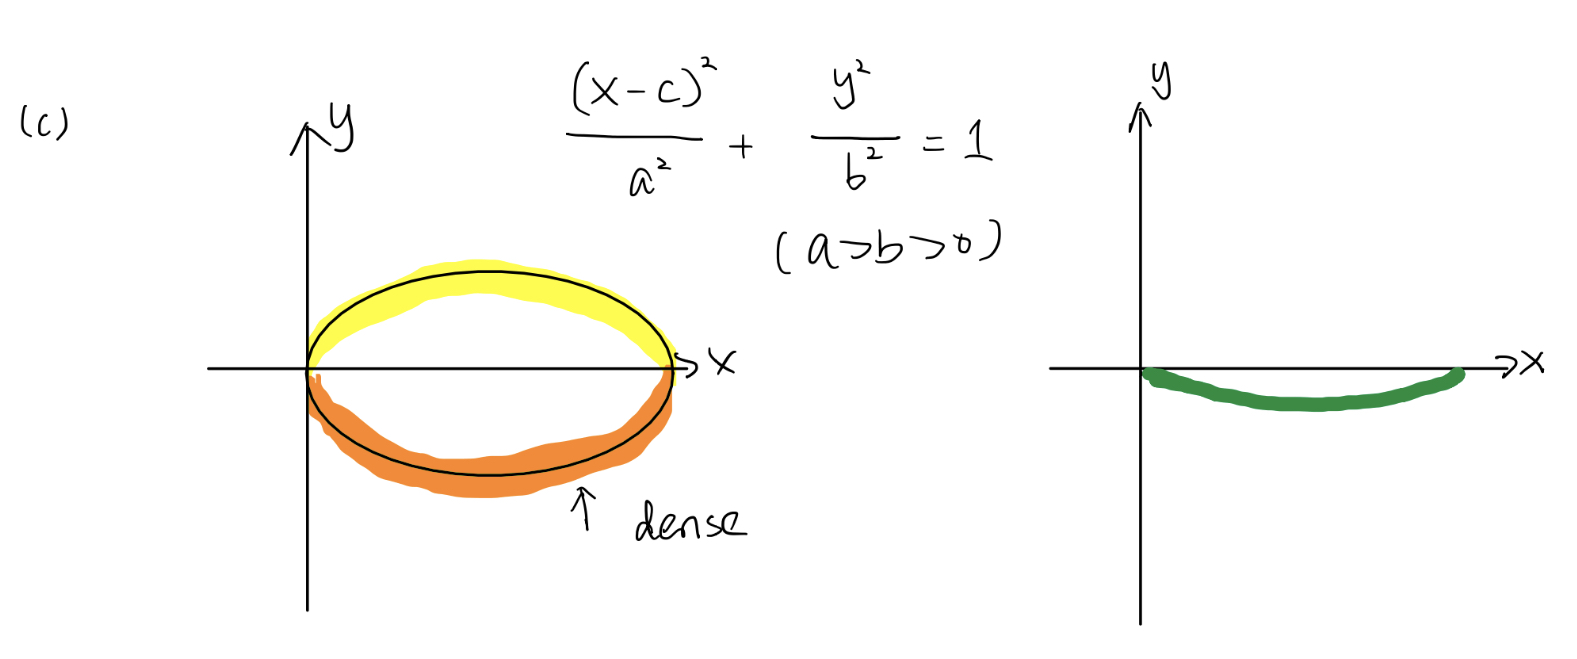 (c)
y
(x-c)²/a² + y²/b² = 1
(a>b>0)
x
dense
y
x